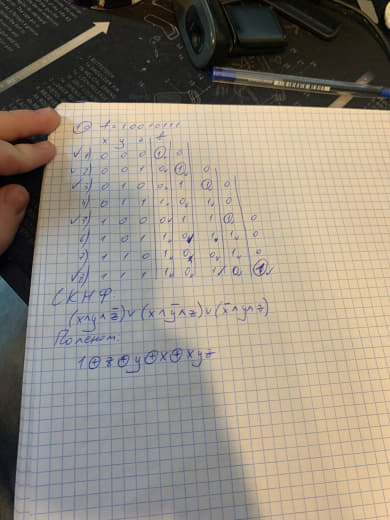 x y z f
1) 0 0 0 1 0
2) 0 0 1 0 1 0
3) 0 1 0 0 1 0 0
4) 0 1 1 1 0 1 0
5) 1 0 0 0 1 1 0 0
6) 1 0 1 1 0 1 1 0
7) 1 1 0 1 0 0 1 0
8) 1 1 1 1 0 1 0 1
СКНФ
(x∧y∧z̄)∨(x∧ȳ∧z)∨(x̄∧y∧z)
Полином
1⊕z⊕y⊕x⊕xyz